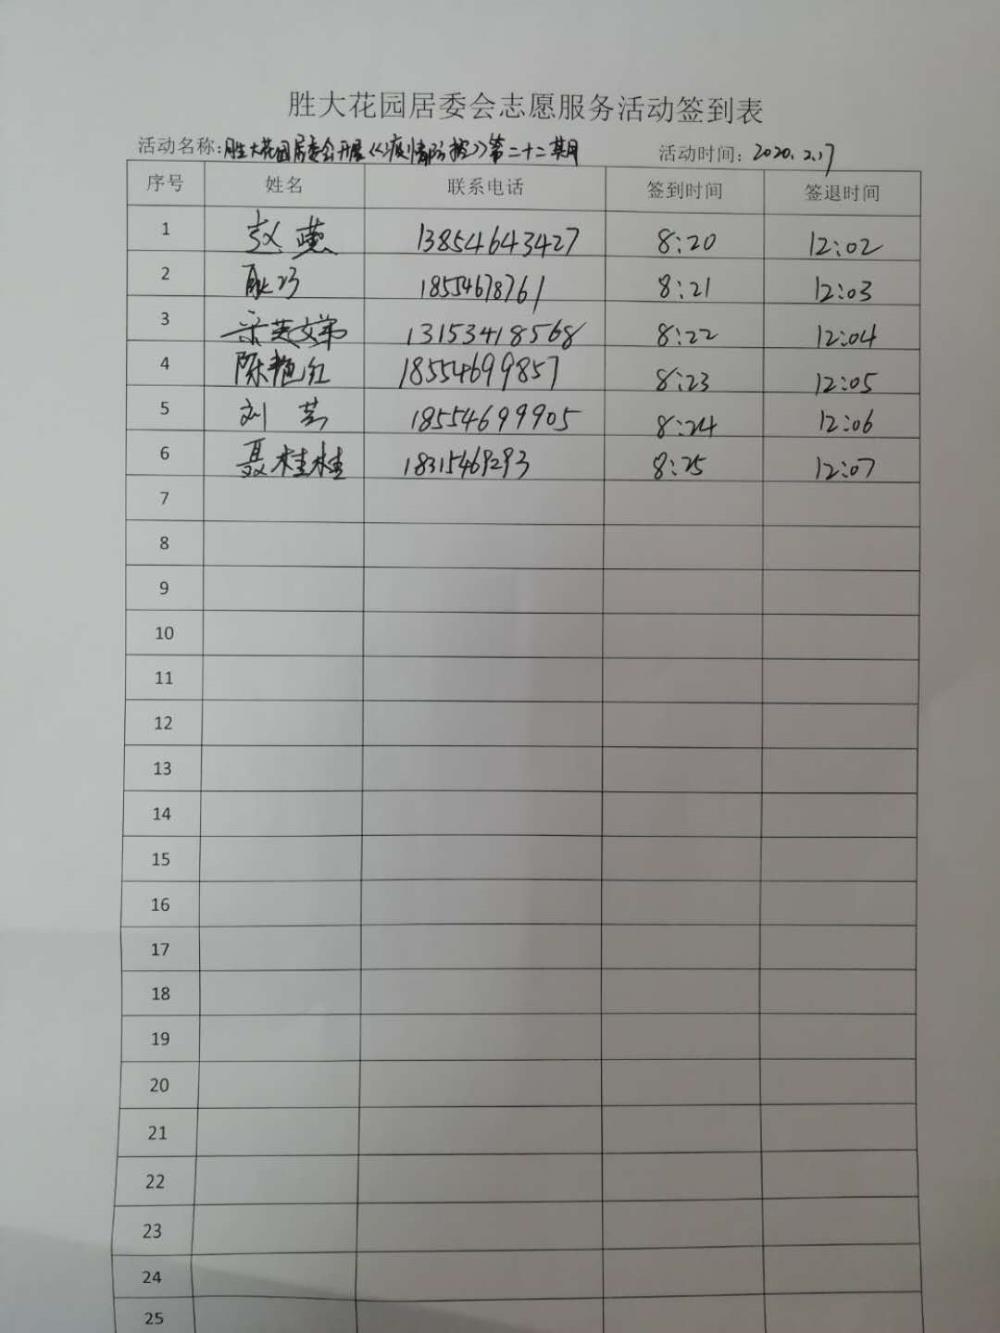 胜大花园居委会志愿服务活动签到表
活动名称:胜大花园居委会开展《疫情防控》第二十二期 活动时间:2020.2.17
序号 姓名 联系电话 签到时间 签退时间
1 赵燕 13854643427 8:20 12:02
2 耿巧 18554678761 8:21 12:03
3 宋英娣 13153418568 8:22 12:04
4 陈艳红 18554699857 8:23 12:05
5 刘芸 18554699905 8:24 12:06
6 聂桂桂 18315469293 8:25 12:07
7
8
9
10
11
12
13
14
15
16
17
18
19
20
21
22
23
24
25